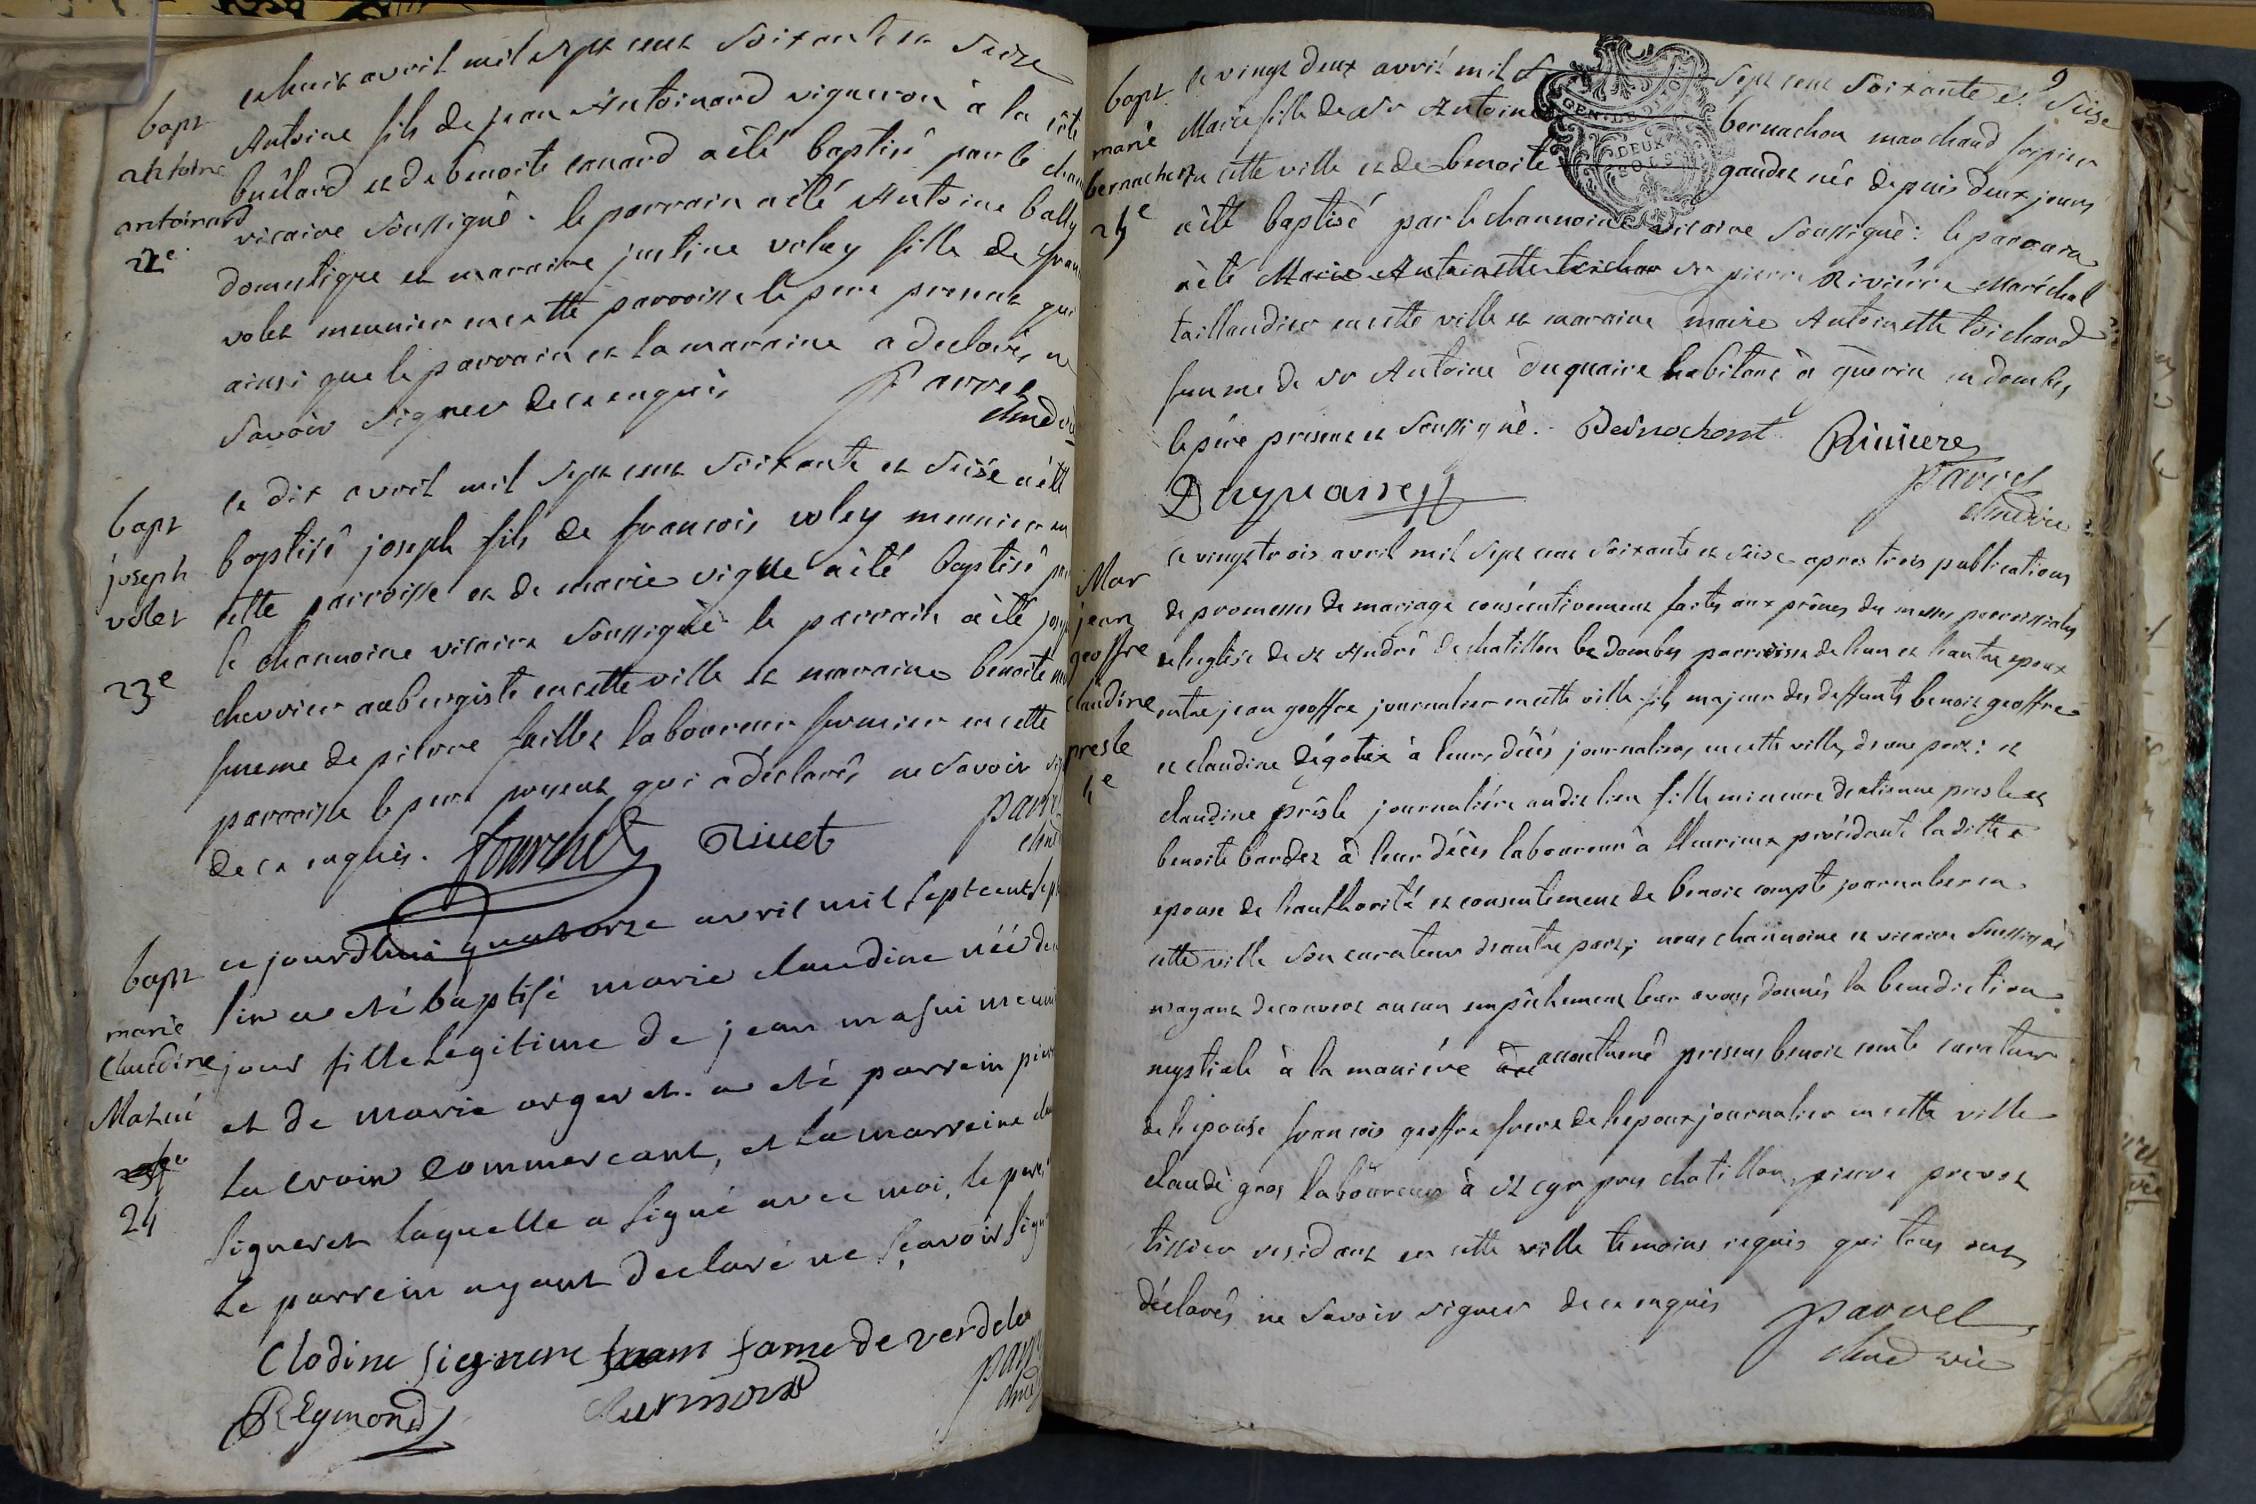 ce huit avril mil sept cent soixante et seize
bapt
antoine
antoinard
22e
Antoine fils de jean Antoinard vigneron à la côte
buélard et de benoite canard a été baptisé par le chan
vicaire soussigné. le parrain a été Antoine bally
domestique et maraine justine voley fille de fran
volet meunier en cette parroisse le pere present qui
ainsi que le parrain et la maraine a declarés ne
savoir signer de ce enquis parrel
chne vic
bapt
joseph
volet
23e
ce dix avril mil sept cent soixante et seise a été
baptisé joseph fils de francois voley meunier en
cette parroisse et de marie vigne a été baptisé par
le chanoine vicaire soussigné le parrain a été jose
chevrier aubergiste en cette ville et maraine benoite
femme de pierre laboureur fermier en cette
parroisse le pere present qui a déclarés ne savoir sig
de ce enquis. fourchet Rivet parrel
chne
bapt
marie
Claudine
Matui
24
ce jourdhui quatorze avril mil sept cent sept
a eté baptisé marie claudine née de
jour fille legitime de jean masui meuni
et de marie orgeret. a eté parrein pierr
la croix commercant, et la marreine clau
signeret laquelle a signé avec moi, le pere,
le parrein ayant declaré ne sçavoir sign
Clodine signere fame de verdelet
REymond parre
chne
9
bapt
marie
bernachon
25e
ce vingt deux avril mil s sept cent soixante et seise
Marie fille de sr Antoine bernachon marchand fripier
en cette ville et de benoite gaudet née depuis deux jours
a été baptisé par le chanoine vicaire soussigné: le parrain
a été Marie Antoinette toichar sr pierre Rivière Maréchal
taillandier en cette ville et maraine marie Antoinette toichard
femme de sr Antoine duquaire habitant à guèrin en dombes
le père present et soussigné. Bernachont Riviere
Duquaire parrel
chne vic
Mar
jean
geoffre
claudine
presle
4e
ce vingt trois avril mil sept cent soixante et seise apres trois publications
de promesses de mariage consécutivement faites aux prônes des messes parroissiales
de leglise de st André de chatillon les dombes parroisse de lun et lautre epoux
entre jean geoffre journalier en cette ville fils majeur des deffunts benoit geoffre
et claudine dégoutex à leurs décès journaliers en cette ville, d'une part: et
claudine présle journalière audit lieu fille mineure d'estienne presle et
benoite bardet à leur décès laboureur à fleurieux procédante la ditte
epouse de lauthorité et consentement de benoit compte journalier en
cette ville son curateur d'autre part; nous chanoine et vicaire soussignés
n'ayant decouvert aucun empêchement leur avons donnés la benediction
nuptiale à la manière accoutumé presens benoit comte curateur
de l'epouse francois geoffre frere de l'epoux journalier en cette ville
claude gros laboureur à st cyr pres chatillon, pierre prevot
tissier residant en cette ville temoins requis qui tous ont
déclarés ne savoir signer de ce enquis parrel
chne vic